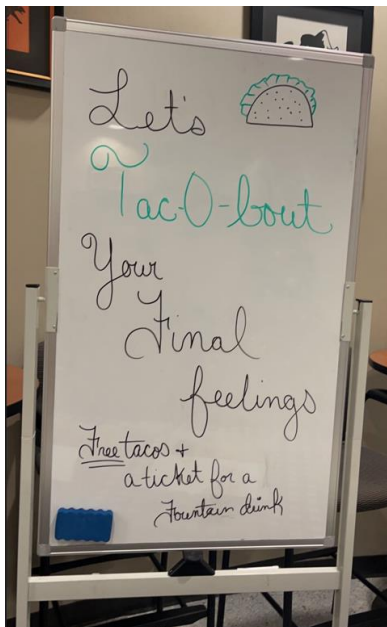 Let's
Tac-O-bout
Your
Final
feelings
Free tacos +
a ticket for a
Fountain drink